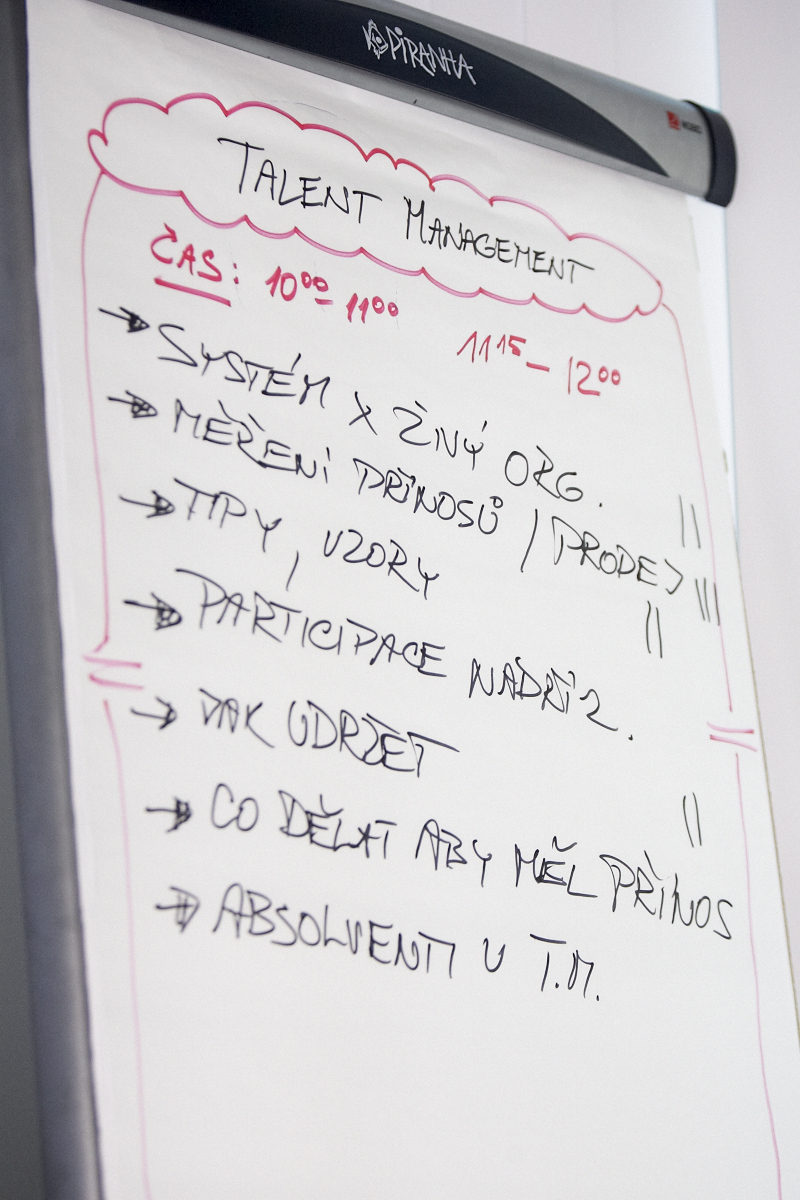 PIRANHA
NOBO
TALENT MANAGEMENT
ČAS: 10⁰⁰ - 11⁰⁰ 11¹⁵ - 12⁰⁰
→ SYSTÉM X ŽNÝ ORG.
→ MĚŘENÍ PŘÍNOSŮ / PRODEJ
→ TIPY, VZORY
→ PARTICIPACE NADŘÍZ.
→ JAK UDRŽET
→ CO DĚLAT ABY MĚL PŘÍNOS
→ ABSOLVENTI V T.M.